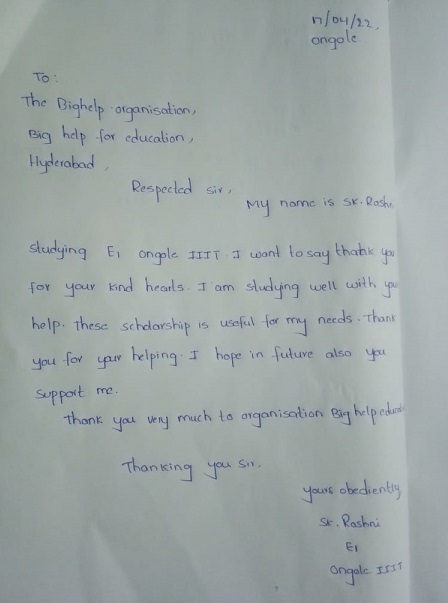 17/04/22,
ongole
To:
The Bighelp organisation,
Big help for education,
Hyderabad,
Respected sir,
My name is SK. Rashn
studying E1 ongole IIIT. I want to say thahk you
for your kind hearts. I am studying well with you
help. These scholarship is useful for my needs. Thank
you for your helping. I hope in future also you
support me.
Thank you very much to organisation Big help educat
Thanking you sir.
yours obediently
SK. Rashni
E1
Ongole IIIT